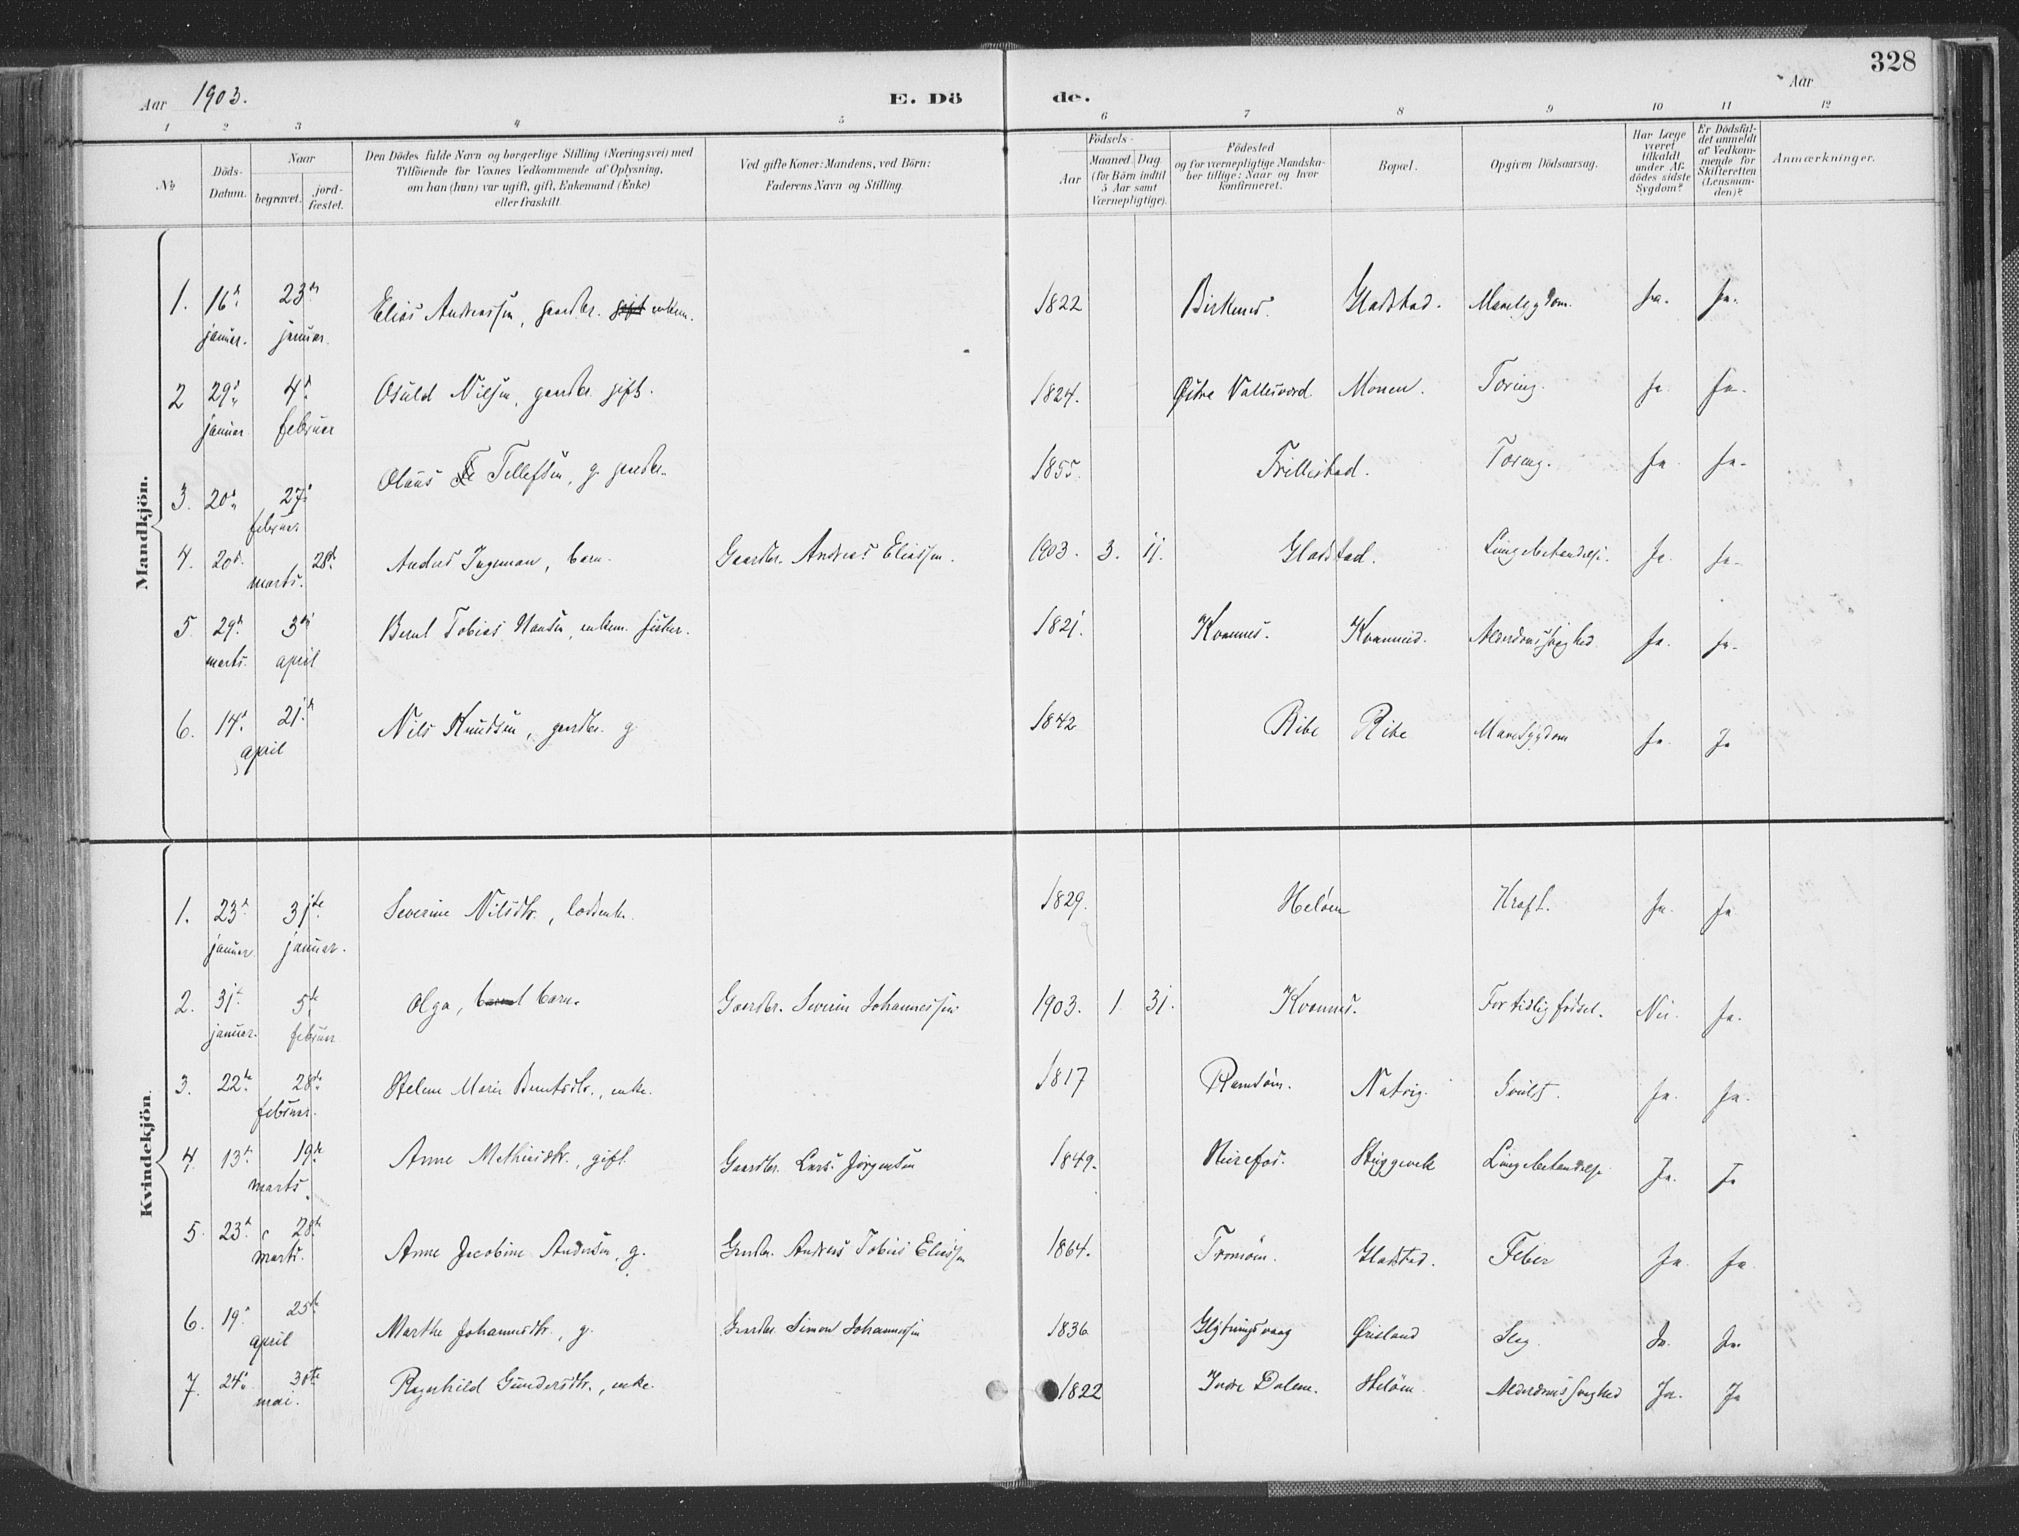 328
Aar 1903.
E. Dö de.
Aar
1 2 3 4 5 6 7 8 9 10 11 12
No
Döds-Datum.
Naar
begravet.
jord-fæstet.
Den Dödes fulde Navn og borgerlige Stilling (Næringsvei) med
Tilföiende for Voxnes Vedkommende af Oplysning,
om han (hun) var ugift, gift, Enkemand (Enke)
eller fraskilt.
Ved gifte Koner: Mandens, ved Börn:
Faderens Navn og Stilling.
Födsels-
Aar
Maaned Dag
(for Börn indtil
5 Aar samt
Værnepligtige).
Födested
og for værnepligtige Mandska-
ber tillige: Naar og hvor
konfirmeret.
Bopæl.
Opgiven Dödsaarsag.
Har Læge
været
tilkaldt
under Af-
dödes sidste
Sygdom?
Er Dödsfal-
det anmeldt
af Vedkom-
mende for
Skifteretten
(Lensman-
den)?
Anmærkninger.
Mandkjön.
1. 16de januar. 23de januar. Elias Andreassen, gaardbr. gift enkem. 1822 Gladstad. Mavesygdom. Ja. Ja.
2 29de januar 4de februar Osuld Nilsen, gaardbr. gift. 1824. Østre Vallesværd Monen. Tæring. Ja. Ja.
3. 20de 27de februar Olaus Tellefsen, g. gaardbr. 1855. Trillestad. Tæring. Ja. Ja.
4. 20de marts. 28de Anders Ingeman, barn. Gaardbr. Andreas Eliassen. 1903. 3. 11. Gladstad. Lungebetændelse. Ja. Ja.
5. 29de marts. 3die april Bernt Tobias Hansen, enkem. fisker. 1821. Kvannes. Kvannes. Alderdomssvaghed. Ja. Ja.
6. 14de 21de april Nils Knudsen, gaardbr. g. 1842 Ribe Ribe Mavesygdom Ja. Ja
Kvindekjön.
1. 23de januar 31te januar. Severine Nilsdtr., 1829. Heløen Kræft. Ja. Ja
2. 31te januar. 5te februar Olga, barn. Gaardbr. Severin Johannessen 1903. 1 31. Kvannes. For tidlig fødsel. Nei. Ja.
3. 22de 28de februar. Helene Marie Berntsdtr., enke. 1817 Ramsøen. Natvig. Svulst. Ja. Ja.
4. 13de 19de marts. Anne Mathisdtr., gift. Gaardbr. Lars Jørgensen 1849. Lungebetændelse Ja. Ja
5. 23de 28de marts. Anne Jacobine Andersen, g. Gaardbr. Andreas Tobias Eliassen 1864. Tromøen. Gladstad. Feber Ja. Ja
6. 19de 25de april Marthe Johannesdtr., g. Gaardbr. Simon Johannessen 1836 Ørisland Slag. Ja. Ja.
7. 24de 30te mai. Ragnhild Gundersdtr., enke. 1822 Indre Dalene. Heløen. Alderdomssvaghed Ja. Ja